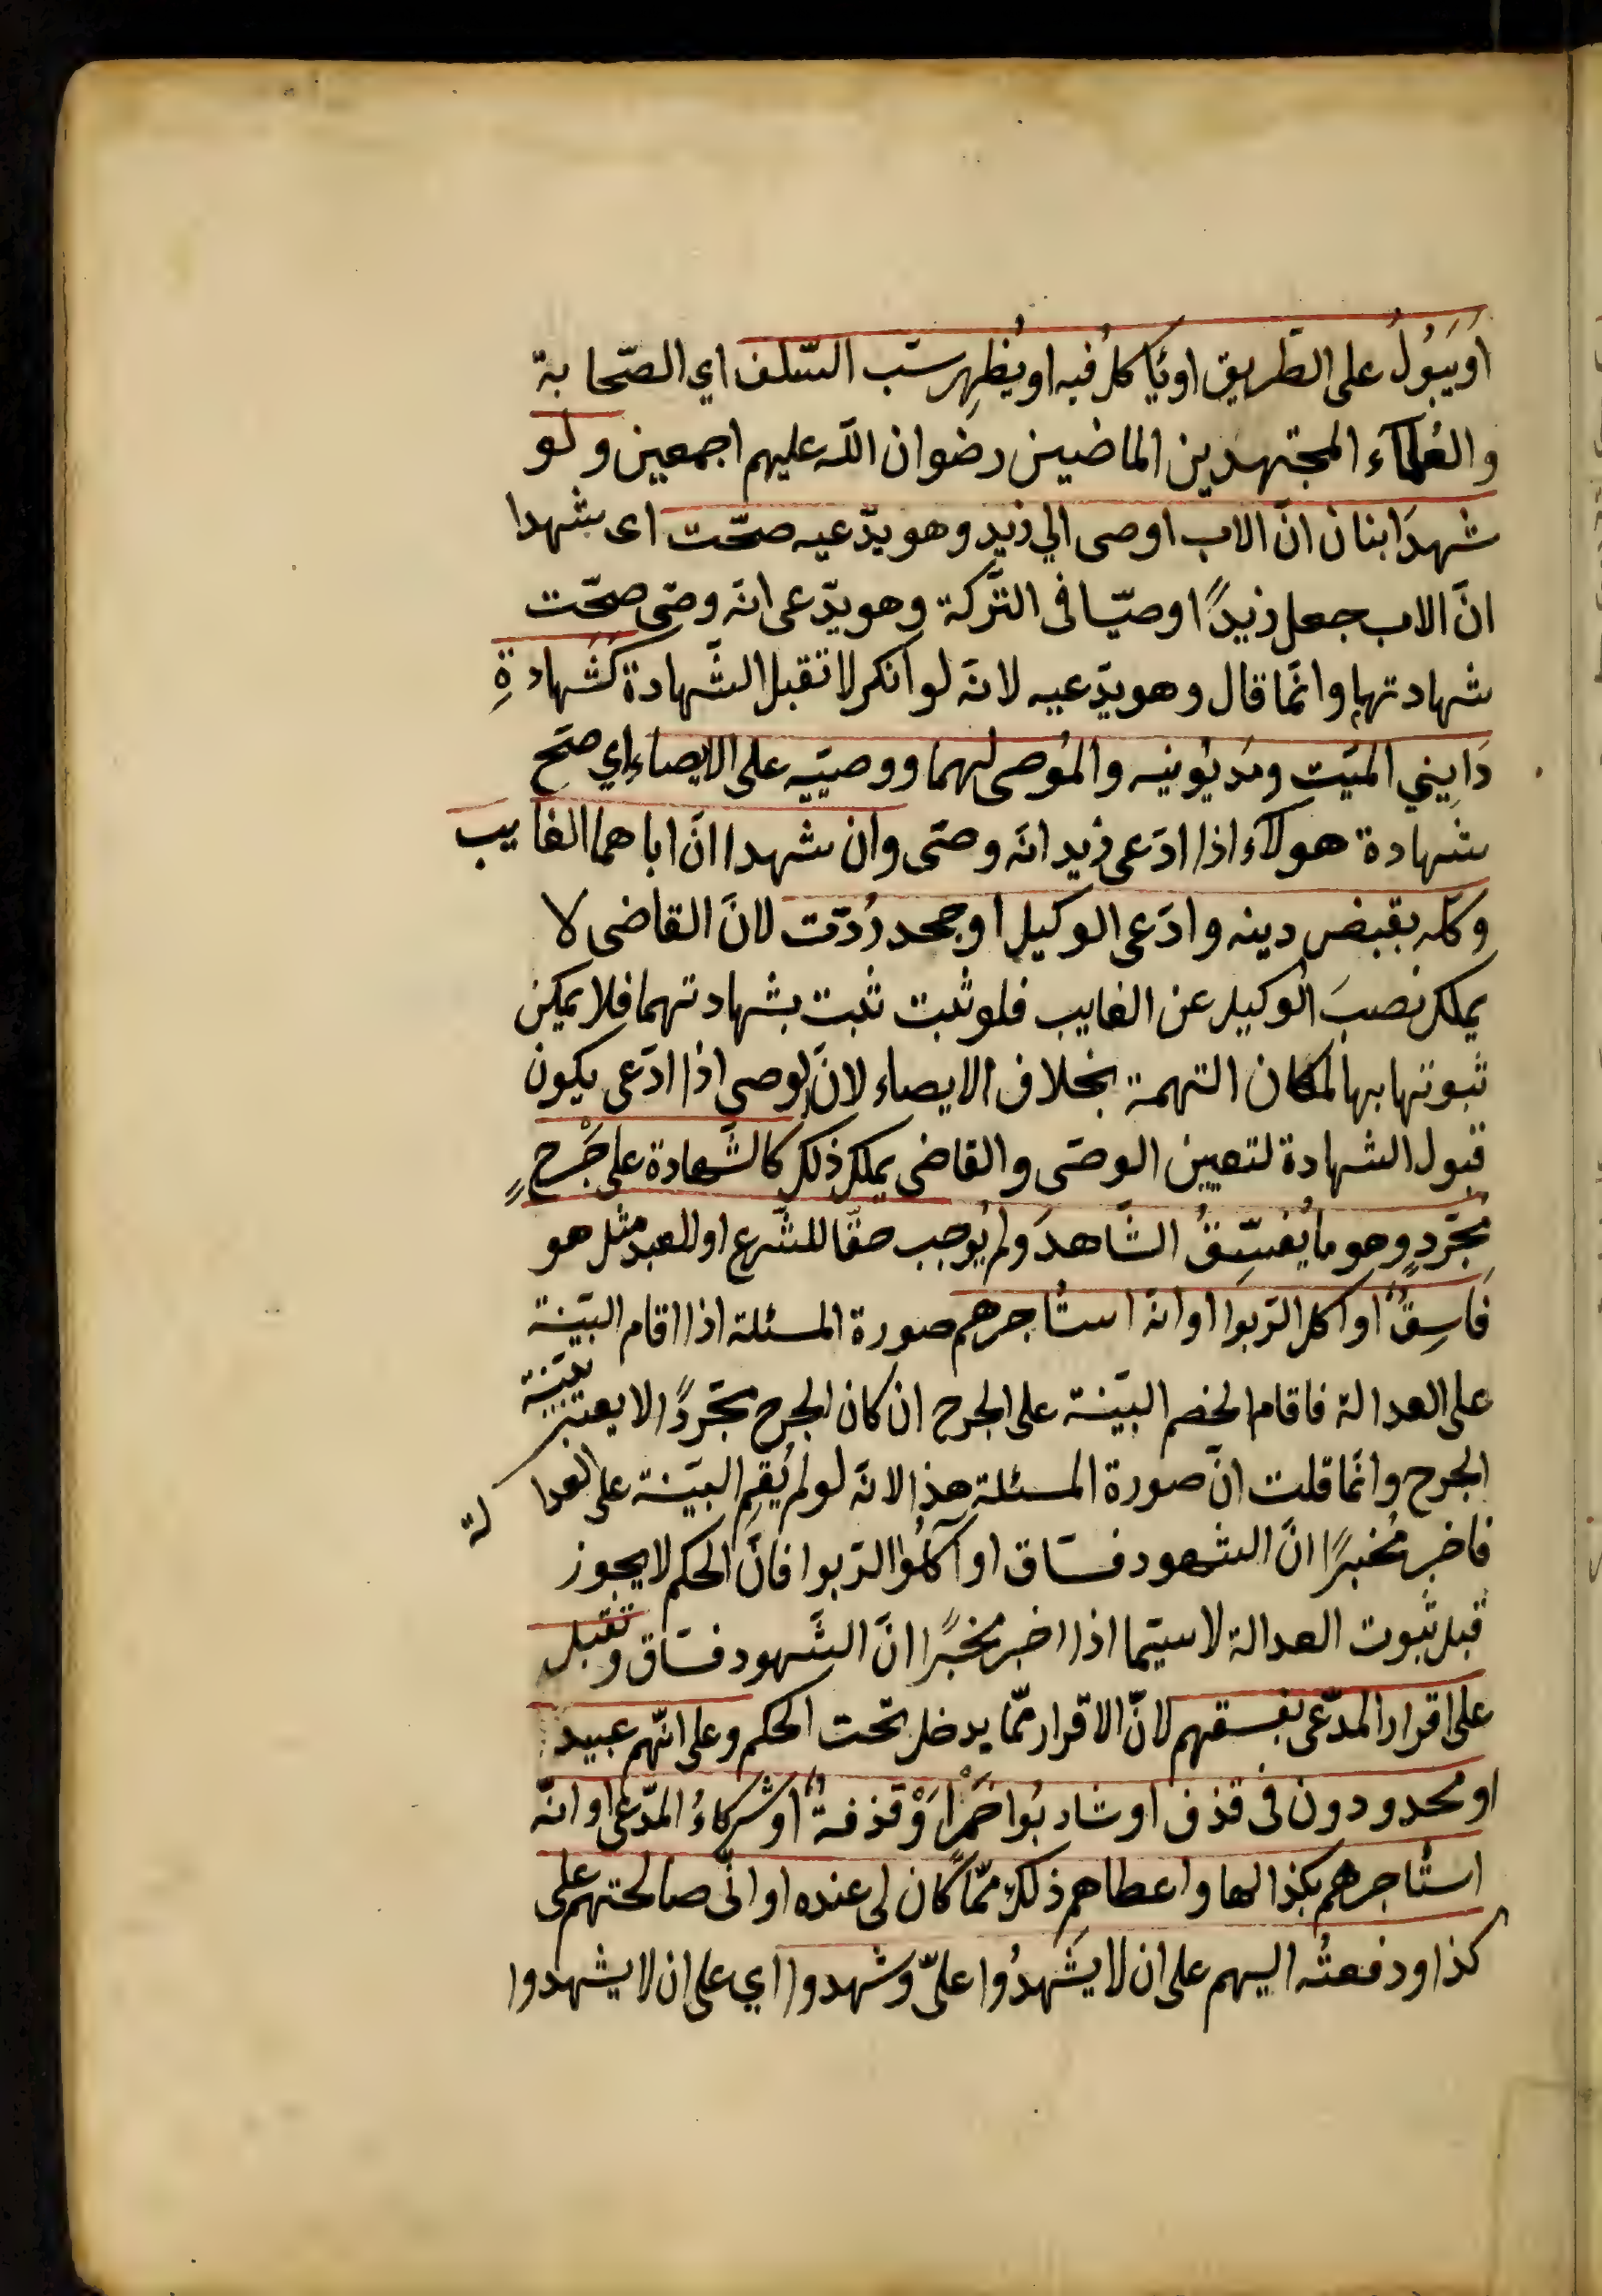 اَويَبُولُ على الطّريق اويَاكلُ فيه اويُظهِر سبّ السّلف اي الصّحابة
والعُلمآء المجتهدين الماضيين رضوان اللّه عليهم اجمعين ولو
شهدَ ابنان انّ الاب اوصى الي زيدٍ وهو يدّعيه صحّت اى شهدا
انّ الاب جعل زيدًا وصيّا فى التّركة وهو يدّعى انّه وصّى صحّت
شهادتهما وانّما قال وهو يدّعيه لانّه لو انكر لا تقبل الشّهادة كشَهادةِ
دَايِني الميّت ومَديُونيه والمُوصى لهما ووصيّيه على الايصاءِ اي صحّ
شهادة هولآء اذا ادّعى زيد انّه وصّى وان شهدا انّ اباهما الغايب
وكّله بقبض دينه وادّعى الوكيل او جحد رُدّت لانّ القاضى لا
يملك نصبَ الوكيل عن الغايب فلو ثبت ثبت بشهادتهما فلا يمكن
ثبوتها بها لمكان التهمة بخلاف الايصاء لانّ لوصى اذا ادّعى يكون
قبول الشهادة لتعيين الوصّى والقاضى يملك ذلك كالشّهادة على جَرْحٍ
مُجرّدٍ وهو ما يُفسِّقُ الشّاهدَ ولم يُوجب حقّا للشّرع او للعبد مثل هو
فَاسِقٌ او آكل الرّبوا او انّه استاجرهم صورة المسئلة اذا اقام البيّنة
على العدالة فاقام الخصم البيّنة على الجرح ان كان الجرح مجرّدًا لا يعتبر بيّنة
الجرح وانّما قلت انّ صورة المسئلة هذا لانّه لو لم يُقِم البيّنة على العدالة
فاخبر مُخبرًا انّ الشهود فسّاق او آكلُوا الرّبوا فانّ الحكم لا يجوز
قبل ثبوت العدالة لا سيّما اذا اخبر مخبرًا انّ الشّهود فسّاق وتقبل
على اقرار المدّعى بفسقهم لانّ الاقرار ممّا يدخل تحت الحكم وعلى انّهم عبيد
او محدودون فى قذف او شاربُوا خَمْرٍ اَوْ قذفةٌ او شركاءُ المدّعى او انّه
استاجرهم بكذا لها واعطاهم ذلك ممّا كان لى عنده او انّى صالحتهم على
كذا ودفعتُه اليهم على ان لا يشهدُوا علىّ وشهدوا اي على ان لا يشهدوا